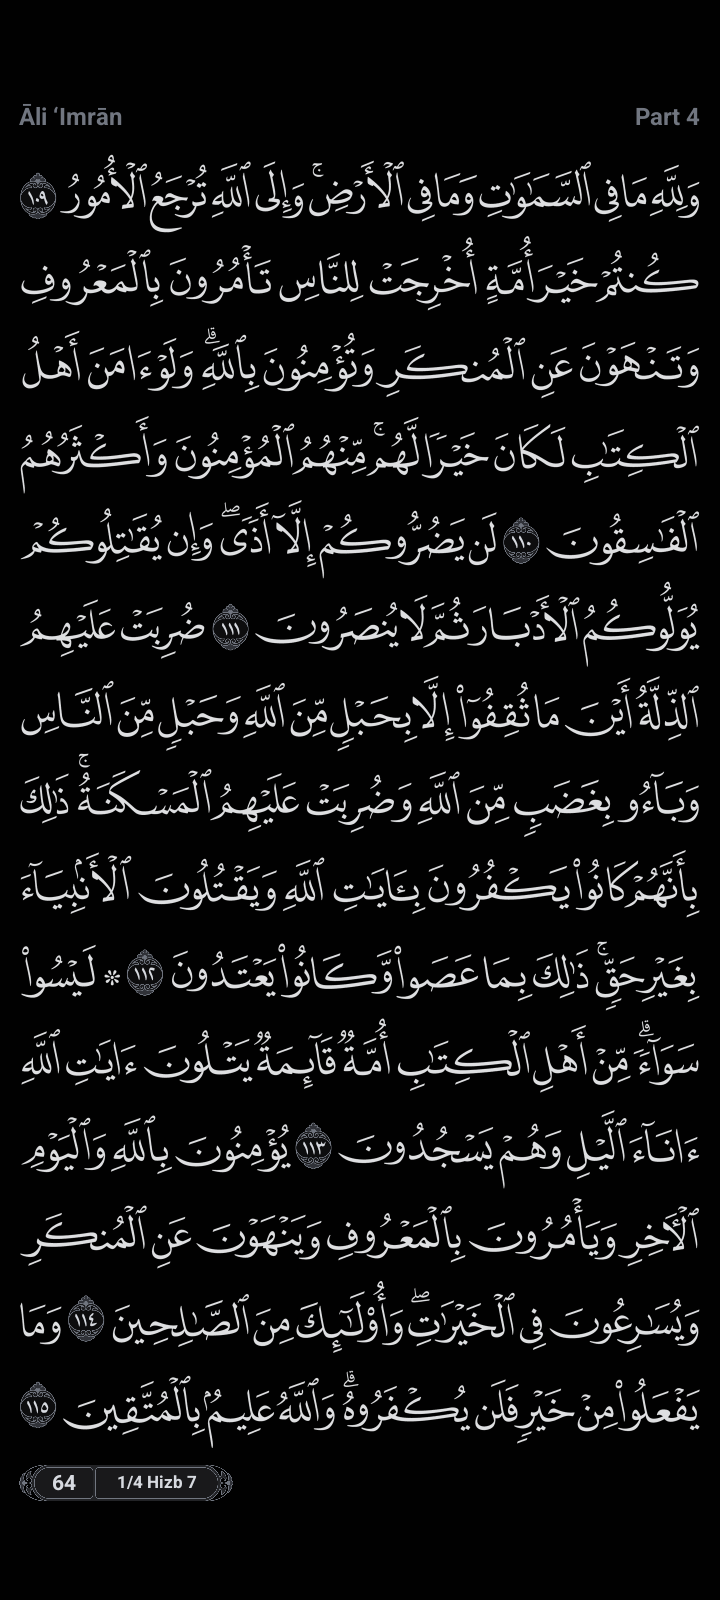 Āli ‘Imrān Part 4
وَلِلَّهِ مَا فِي ٱلسَّمَٰوَٰتِ وَمَا فِي ٱلۡأَرۡضِۚ وَإِلَى ٱللَّهِ تُرۡجَعُ ٱلۡأُمُورُ ١٠٩
كُنتُمۡ خَيۡرَ أُمَّةٍ أُخۡرِجَتۡ لِلنَّاسِ تَأۡمُرُونَ بِٱلۡمَعۡرُوفِ
وَتَنۡهَوۡنَ عَنِ ٱلۡمُنكَرِ وَتُؤۡمِنُونَ بِٱللَّهِۗ وَلَوۡ ءَامَنَ أَهۡلُ
ٱلۡكِتَٰبِ لَكَانَ خَيۡرٗا لَّهُمۚ مِّنۡهُمُ ٱلۡمُؤۡمِنُونَ وَأَكۡثَرُهُمُ
ٱلۡفَٰسِقُونَ ١١٠ لَن يَضُرُّوكُمۡ إِلَّآ أَذٗىۖ وَإِن يُقَٰتِلُوكُمۡ
يُوَلُّوكُمُ ٱلۡأَدۡبَارَ ثُمَّ لَا يُنصَرُونَ ١١١ ضُرِبَتۡ عَلَيۡهِمُ
ٱلذِّلَّةُ أَيۡنَ مَا ثُقِفُوٓاْ إِلَّا بِحَبۡلٖ مِّنَ ٱللَّهِ وَحَبۡلٖ مِّنَ ٱلنَّاسِ
وَبَآءُو بِغَضَبٖ مِّنَ ٱللَّهِ وَضُرِبَتۡ عَلَيۡهِمُ ٱلۡمَسۡكَنَةُۚ ذَٰلِكَ
بِأَنَّهُمۡ كَانُواْ يَكۡفُرُونَ بِـَٔايَٰتِ ٱللَّهِ وَيَقۡتُلُونَ ٱلۡأَنۢبِيَآءَ
بِغَيۡرِ حَقّٖۚ ذَٰلِكَ بِمَا عَصَواْ وَّكَانُواْ يَعۡتَدُونَ ١١٢ ۞ لَيۡسُواْ
سَوَآءٗۗ مِّنۡ أَهۡلِ ٱلۡكِتَٰبِ أُمَّةٞ قَآئِمَةٞ يَتۡلُونَ ءَايَٰتِ ٱللَّهِ
ءَانَآءَ ٱلَّيۡلِ وَهُمۡ يَسۡجُدُونَ ١١٣ يُؤۡمِنُونَ بِٱللَّهِ وَٱلۡيَوۡمِ
ٱلۡأٓخِرِ وَيَأۡمُرُونَ بِٱلۡمَعۡرُوفِ وَيَنۡهَوۡنَ عَنِ ٱلۡمُنكَرِ
وَيُسَٰرِعُونَ فِي ٱلۡخَيۡرَٰتِۖ وَأُوْلَٰٓئِكَ مِنَ ٱلصَّٰلِحِينَ ١١٤ وَمَا
يَفۡعَلُواْ مِنۡ خَيۡرٖ فَلَن يُكۡفَرُوهُۗ وَٱللَّهُ عَلِيمُۢ بِٱلۡمُتَّقِينَ ١١٥
64 1/4 Hizb 7